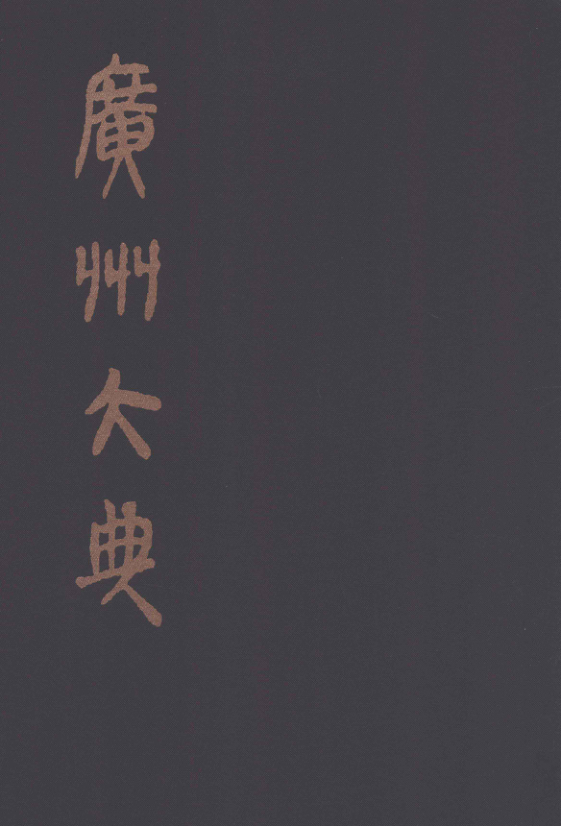 廣州大典